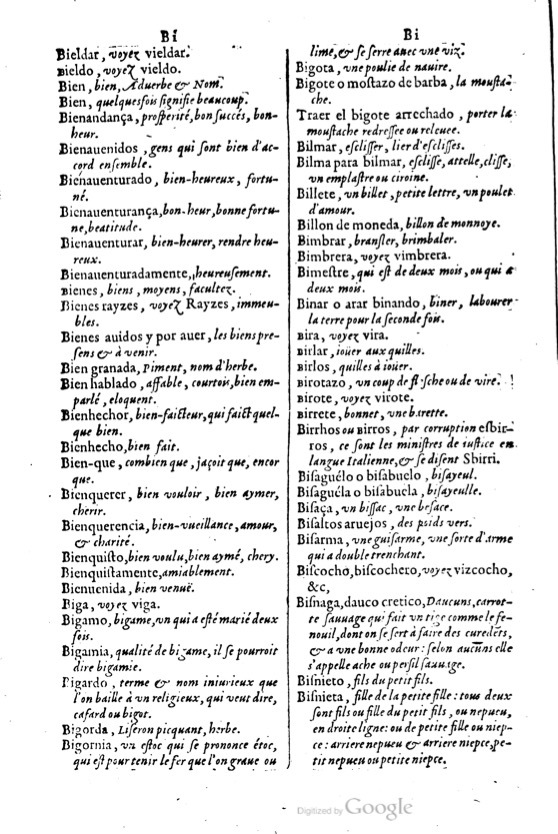 Bi
Bieldar, voyez vieldar.
Bieldo, voyez vieldo.
Bien, bien, Aduerbe & Nom.
Bien, quelquesfois signifie beaucoup.
Bienandança, prosperité, bon succés, bon-
heur.
Bienauenidos, gens qui sont bien d'ac-
cord ensemble.
Bienauenturado, bien-heureux, fortu-
né.
Bienauenturança, bon-heur, bonne fortu-
ne, beatitude.
Bienauenturar, bien-heurer, rendre heu-
reux.
Bienauenturadamente, heureusement.
Bienes, biens, moyens, facultez.
Bienes rayzes, voyez Rayzes, immeu-
bles.
Bienes auidos y por auer, les biens pre-
sens & à venir.
Bien granada, Piment, nom d'herbe.
Bien hablado, affable, courtois, bien em-
parlé, eloquent.
Bienhechor, bien-faicteur, qui faict quel-
que bien.
Bienhecho, bien fait.
Bien-que, combien que, jaçoit que, encor
que.
Bienquerer, bien vouloir, bien aymer,
cherir.
Bienquerencia, bien-vueillance, amour,
& charité.
Bienquisto, bien voulu, bien aymé, chery.
Bienquistamente, amiablement.
Bienuenida, bien venuë.
Biga, voyez viga.
Bigamo, bigame, un qui a esté marié deux
fois.
Bigamia, qualité de bigame, il se pourroit
dire bigamie.
Bigardo, terme & nom iniurieux que
l'on baille à vn religieux, qui veut dire,
cafard ou bigot.
Bigorda, Liseron picquant, herbe.
Bigornia, vn estoc qui se prononce étoc,
qui est pour tenir le fer que l'on graue ou
Bi
lime, & se serre auec vne viz.
Bigota, vne poulie de nauire.
Bigote o mostazo de barba, la mousta-
che.
Traer el bigote arrechado, porter la
moustache redressee ou releuee.
Bilmar, esclisser, lier d'esclisses.
Bilma para bilmar, esclisse, attelle, clisse,
vn emplastre ou ciroine.
Billete, vn billet, petite lettre, vn poulet
d'amour.
Billon de moneda, billon de monnoye.
Bimbrar, bransler, brimbaler.
Bimbrera, voyez vimbrera.
Bimestre, qui est de deux mois, ou qui a
deux mois.
Binar o arar binando, biner, labourer
la terre pour la seconde fois.
Bira, voyez vira.
Birlar, ioüer aux quilles.
Birlos, quilles à ioüer.
Birotazo, vn coup de flesche ou de vire.
Birote, voyez virote.
Birrete, bonnet, vne barette.
Birrhos ou Birros, par corruption esbir-
ros, ce sont les ministres de iustice en
langue Italienne, & se disent Sbirri.
Bisaguélo o bisabuelo, bisayeul.
Bisaguéla o bisabuela, bisayeulle.
Bisaça, vn bissac, vne besace.
Bisaltos aruejos, des poids vers.
Bisarma, vne guisarme, vne sorte d'arme
qui a double trenchant.
Biscocho, biscochero, voyez vizcocho,
&c,
Bisnaga, dauco cretico, Daucuns, carrot-
te sauuage qui fait vn tige comme le fe-
nouil, dont on se sert à faire des curedéts,
& a vne bonne odeur: selon aucuns elle
s'appelle ache ou persil sauuage.
Bisnieto, fils du petit fils.
Bisnieta, fille de la petite fille: tous deux
sont fils ou fille du petit fils, ou nepueu,
en droite ligne: ou de petite fille ou niep-
ce: arriere nepueu & arriere niepce, pe-
tit nepueu ou petite niepce.
Digitized by Google